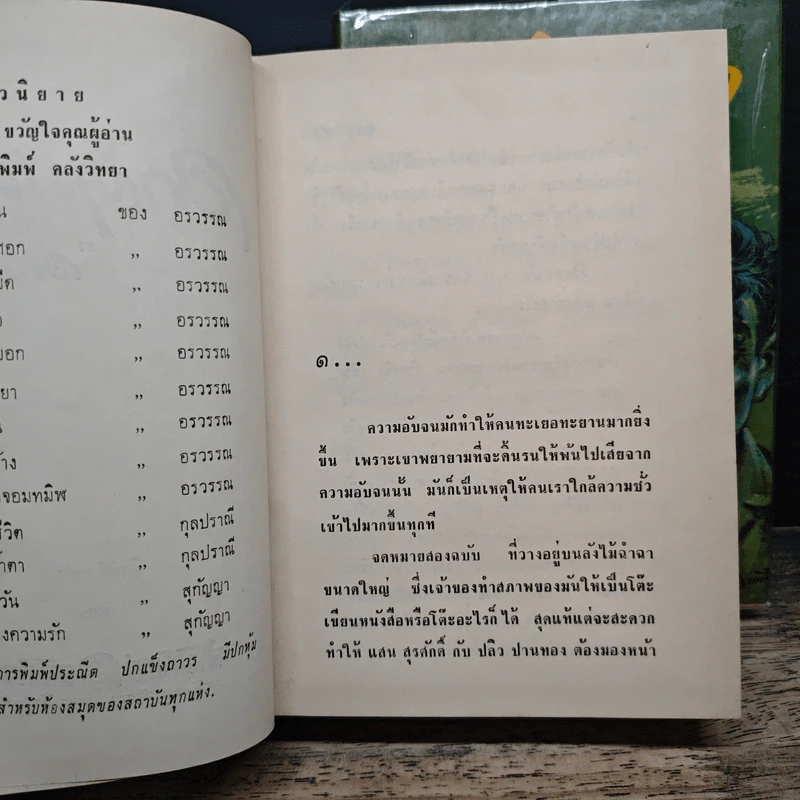 วนิยาย
ขวัญใจคุณผู้อ่าน
พิมพ์ คลังวิทยา
น ของ อรวรรณ
ศอก ,, อรวรรณ
มืด ,, อรวรรณ
อ ,, อรวรรณ
มอก ,, อรวรรณ
ยา ,, อรวรรณ
น ,, อรวรรณ
ร้าง ,, อรวรรณ
จอมทมิฬ ,, อรวรรณ
ชีวิต ,, กุลปราณี
้ำตา ,, กุลปราณี
วัน ,, สุกัญญา
งความรัก ,, สุกัญญา
การพิมพ์ประณีต ปกแข็งถาวร มีปกหุ้ม
สำหรับห้องสมุดของสถาบันทุกแห่ง.
๑...
ความอับจนมักทำให้คนทะเยอทะยานมากยิ่ง
ขึ้น เพราะเขาพยายามที่จะดิ้นรนให้พ้นไปเสียจาก
ความอับจนนั้น มันก็เป็นเหตุให้คนเราใกล้ความชั่ว
เข้าไปมากขึ้นทุกที
จดหมายสองฉบับ ที่วางอยู่บนลังไม้ฉำฉา
ขนาดใหญ่ ซึ่งเจ้าของทำสภาพของมันให้เป็นโต๊ะ
เขียนหนังสือหรือโต๊ะอะไรก็ได้ สุดแท้แต่จะสะดวก
ทำให้ แสน สุรศักดิ์ กับ ปลิว ปานทอง ต้องมองหน้า